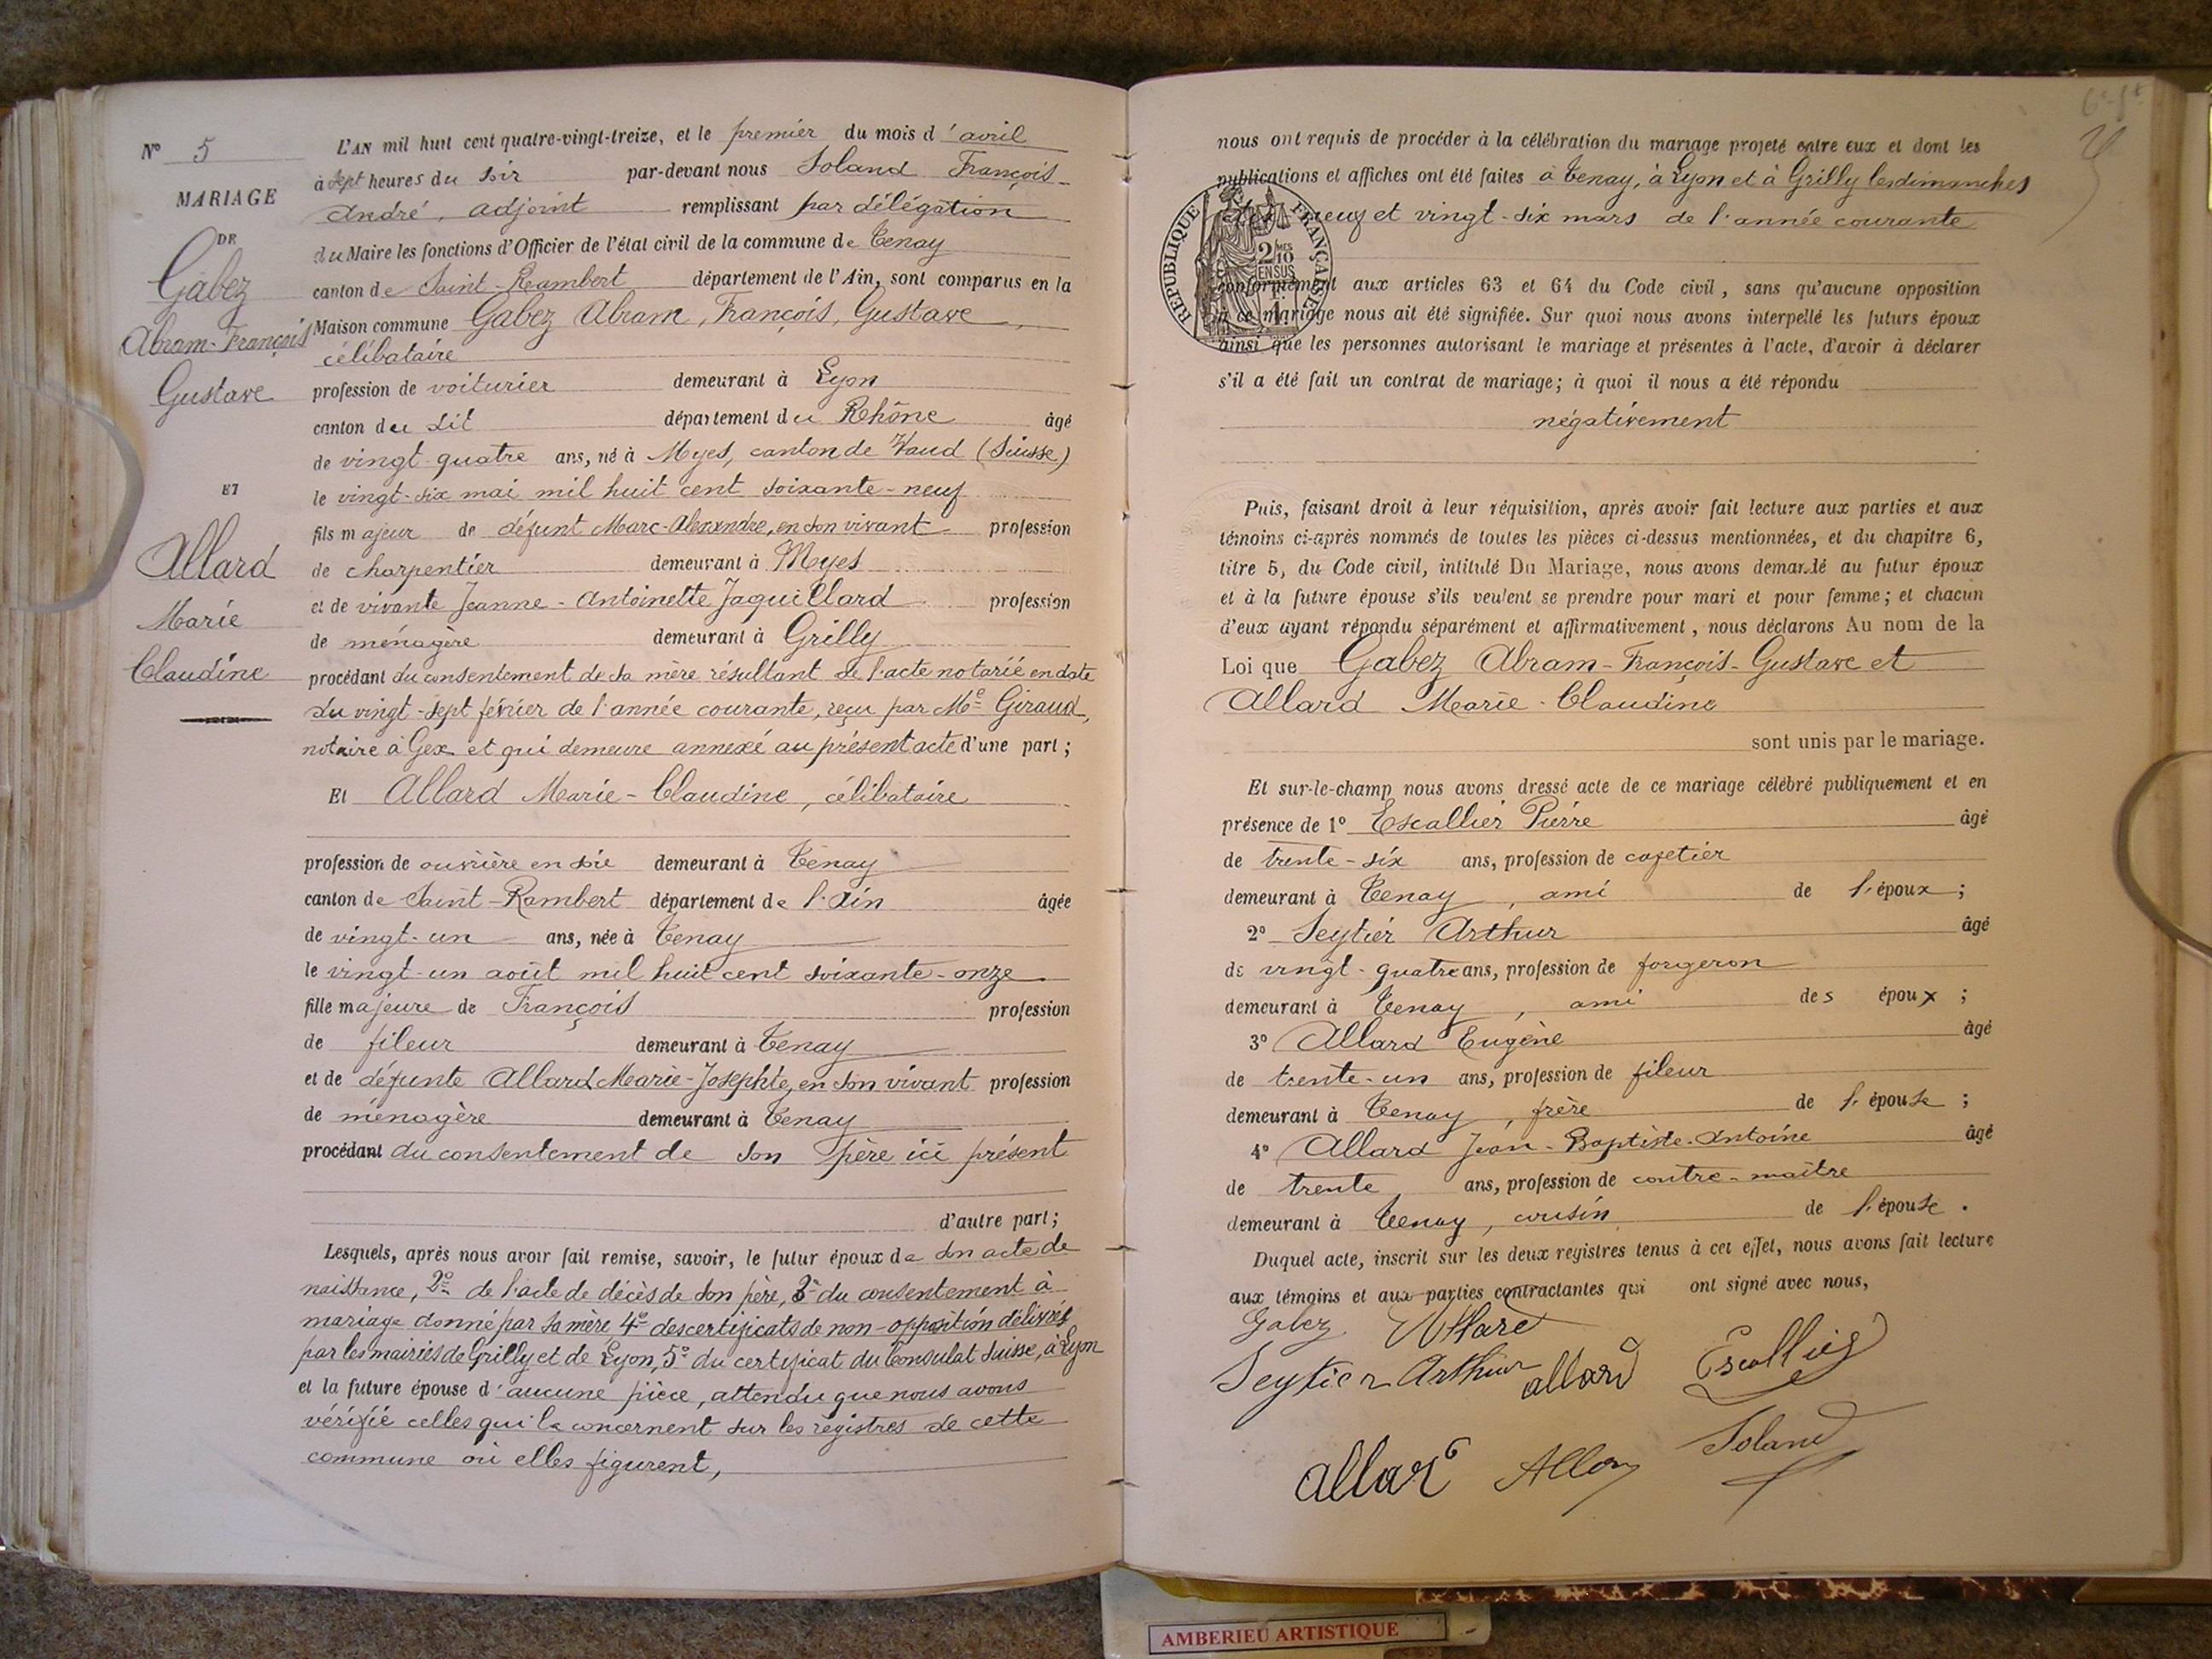 N° 5
MARIAGE
DE
Gabez
Abram-François
Gustave
ET
Allard
Marie
Claudine
L'AN mil huit cent quatre-vingt-treize, et le premier du mois d'avril
à sept heures du soir par-devant nous Soland François-
André, adjoint remplissant par délégation
du Maire les fonctions d'Officier de l'état civil de la commune de Tenay
canton de Saint-Rambert département de l'Ain, sont comparus en la
Maison commune Gabez Abram, François, Gustave,
célibataire
profession de voiturier demeurant à Lyon
canton du dit département du Rhône âgé
de vingt-quatre ans, né à Myes, canton de Vaud (Suisse)
le vingt-six mai mil huit cent soixante-neuf
fils majeur de défunt Marc-Alexandre, en son vivant profession
de charpentier demeurant à Myes
et de vivante Jeanne-Antoinette Jaquillard profession
de ménagère demeurant à Grilly
procédant du consentement de sa mère résultant de l'acte notarié en date
du vingt-sept février de l'année courante, reçu par Me Giraud,
notaire à Gex et qui demeure annexé au présent acte d'une part;
Et Allard Marie-Claudine, célibataire
profession de ouvrière en soie demeurant à Tenay
canton de Saint-Rambert département de l'Ain âgée
de vingt-un ans, née à Tenay
le vingt-un août mil huit cent soixante-onze
fille majeure de François profession
de fileur demeurant à Tenay
et de défunte Allard Marie-Josephte, en son vivant profession
de ménagère demeurant à Tenay
procédant du consentement de son père ici présent
d'autre part;
Lesquels, après nous avoir fait remise, savoir, le futur époux de son acte de
naissance, 2° de l'acte de décès de son père, 3° du consentement à
mariage donné par sa mère 4° des certificats de non-opposition délivrés
par les mairies de Grilly et de Lyon, 5° du certificat du Consulat Suisse, à Lyon
et la future épouse d'aucune pièce, attendu que nous avons
vérifié celles qui la concernent sur les registres de cette
commune où elles figurent,
nous ont requis de procéder à la célébration du mariage projeté entre eux et dont les
publications et affiches ont été faites à Tenay, à Lyon et à Grilly les dimanches
neuf et vingt-six mars de l'année courante
REPUBLIQUE FRANÇAISE
2 MES 10
EN SUS
conformément aux articles 63 et 64 du Code civil, sans qu'aucune opposition
à ce mariage nous ait été signifiée. Sur quoi nous avons interpellé les futurs époux
ainsi que les personnes autorisant le mariage et présentes à l'acte, d'avoir à déclarer
s'il a été fait un contrat de mariage; à quoi il nous a été répondu
négativement
Puis, faisant droit à leur réquisition, après avoir fait lecture aux parties et aux
témoins ci-après nommés de toutes les pièces ci-dessus mentionnées, et du chapitre 6,
titre 5, du Code civil, intitulé Du Mariage, nous avons demandé au futur époux
et à la future épouse s'ils veulent se prendre pour mari et pour femme; et chacun
d'eux ayant répondu séparément et affirmativement, nous déclarons Au nom de la
Loi que Gabez Abram-François-Gustave et
Allard Marie-Claudine
sont unis par le mariage.
Et sur-le-champ nous avons dressé acte de ce mariage célébré publiquement et en
présence de 1° Escallier Pierre âgé
de trente-six ans, profession de cafetier
demeurant à Tenay, ami de l'époux;
2° Seytier Arthur âgé
de vingt-quatre ans, profession de forgeron
demeurant à Tenay, ami des époux;
3° Allard Eugène âgé
de trente-un ans, profession de fileur
demeurant à Tenay, frère de l'épouse;
4° Allard Jean-Baptiste-Antoine âgé
de trente ans, profession de contre-maître
demeurant à Tenay, cousin de l'épouse.
Duquel acte, inscrit sur les deux registres tenus à cet effet, nous avons fait lecture
aux témoins et aux parties contractantes qui ont signé avec nous,
Gabez Allard
Seytier Arthur allard Escallier
allard Allard Soland
AMBERIEU ARTISTIQUE